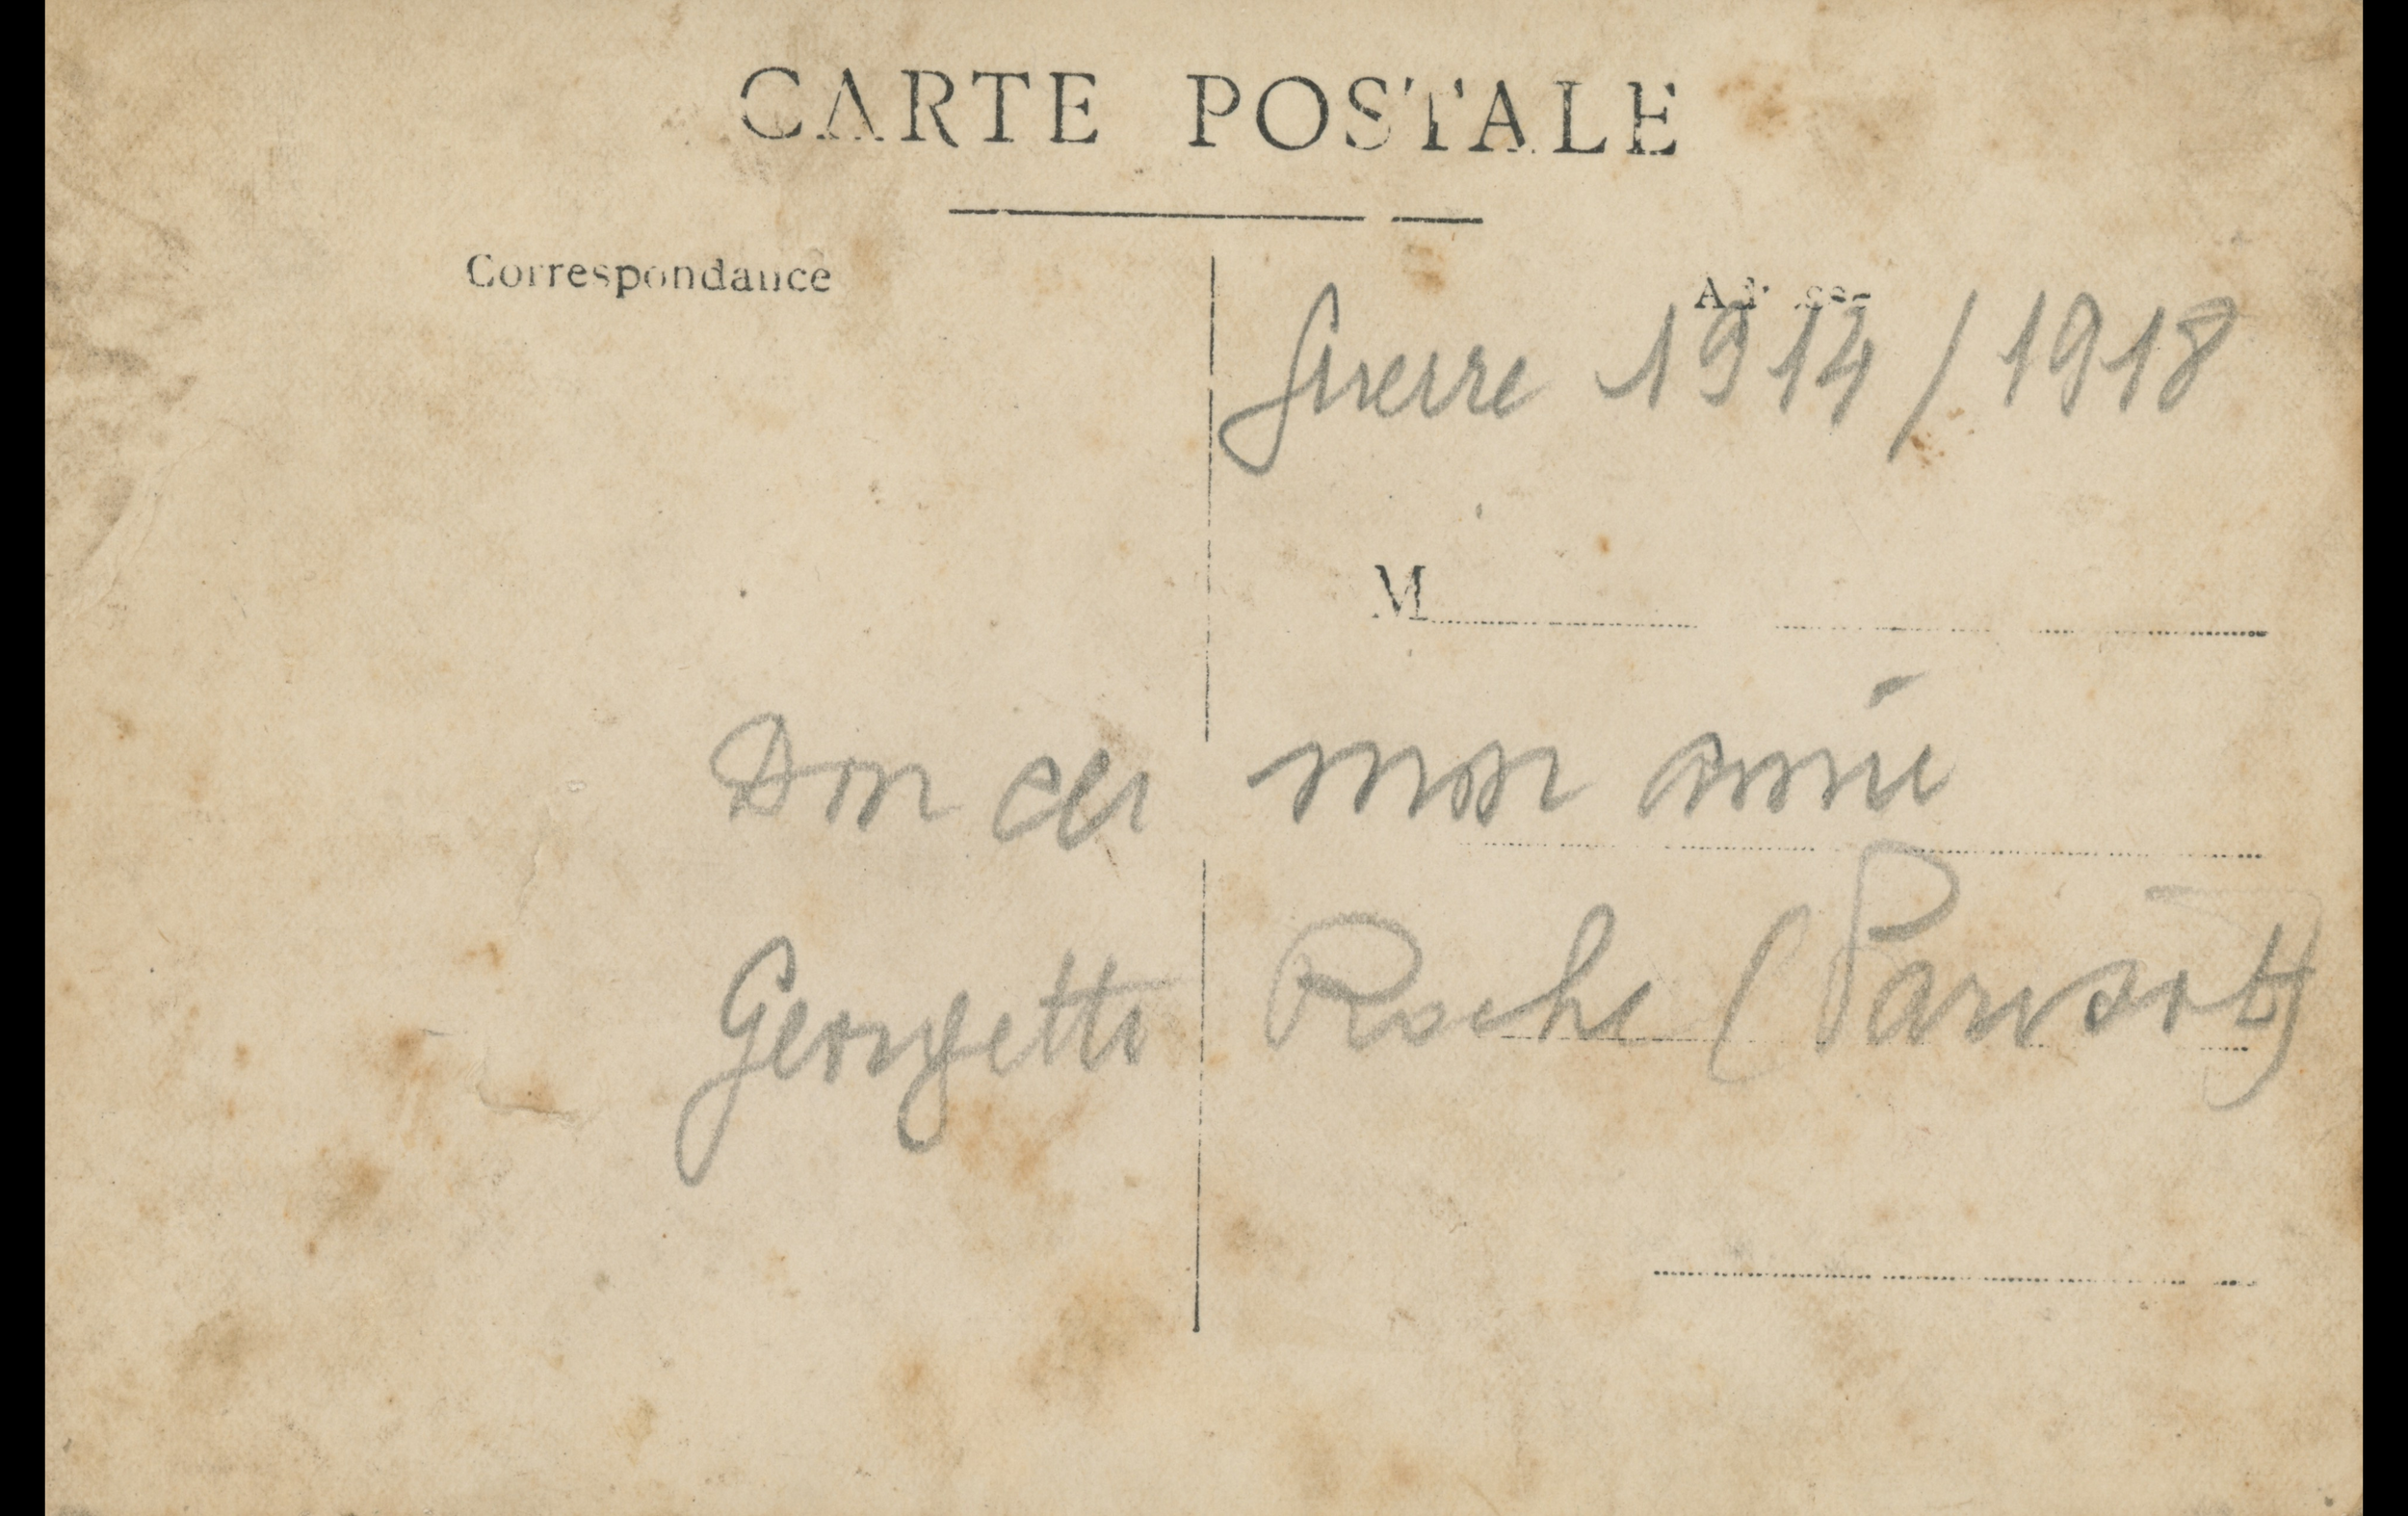 CARTE POSTALE
Correspondance
Guerre 1914/1918
M
Don de mon amie
Georgette Roche (Parisot)